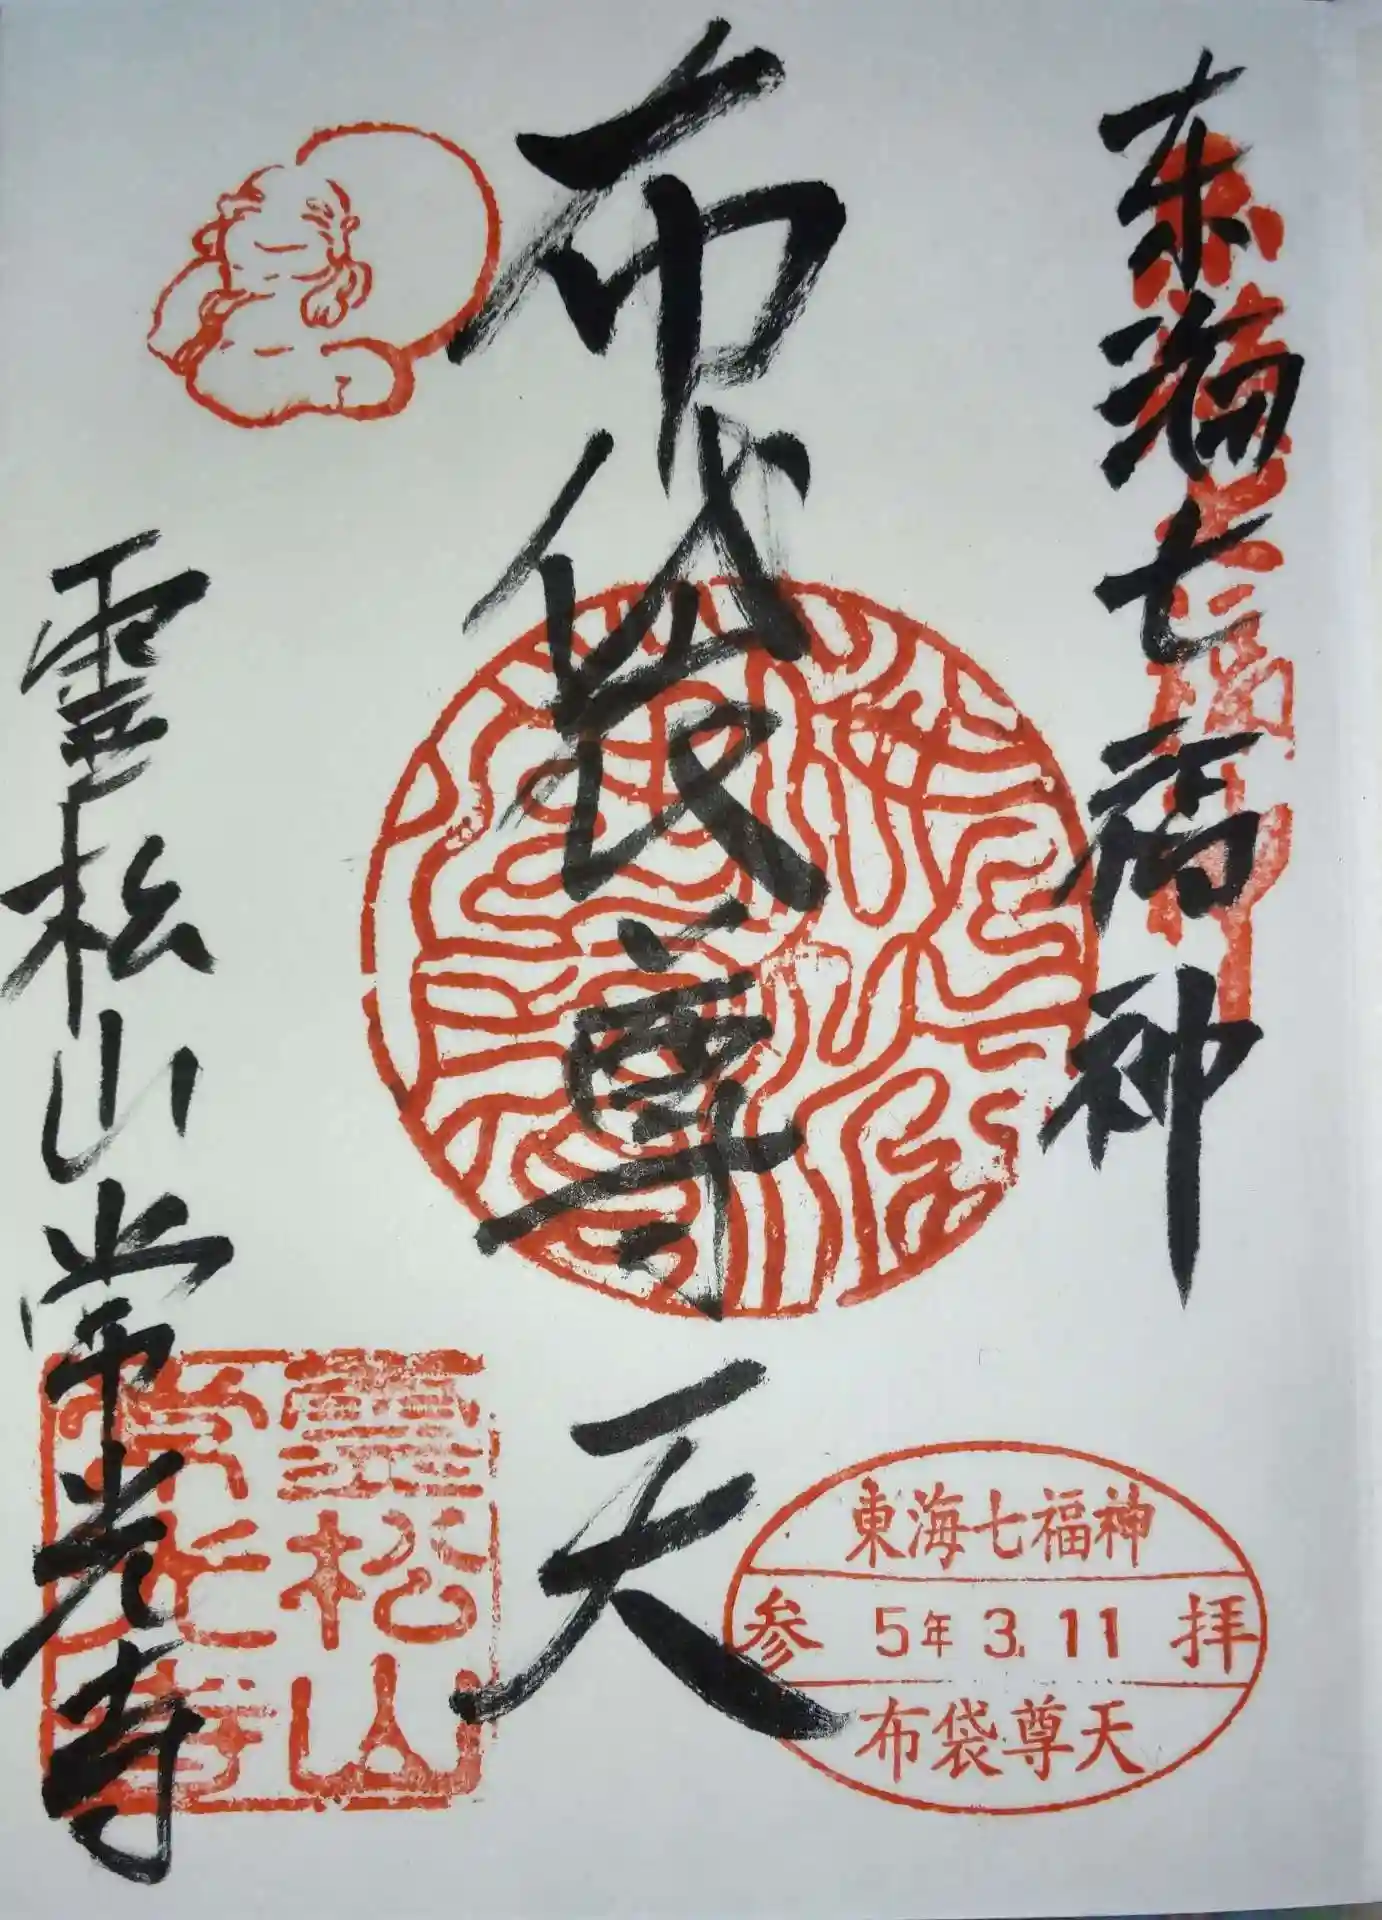 东海七福神
東海七福神
布袋尊天
霊松山常光寺
霊松山
常光寺
東海七福神
参 5年 3. 11 拝
布袋尊天